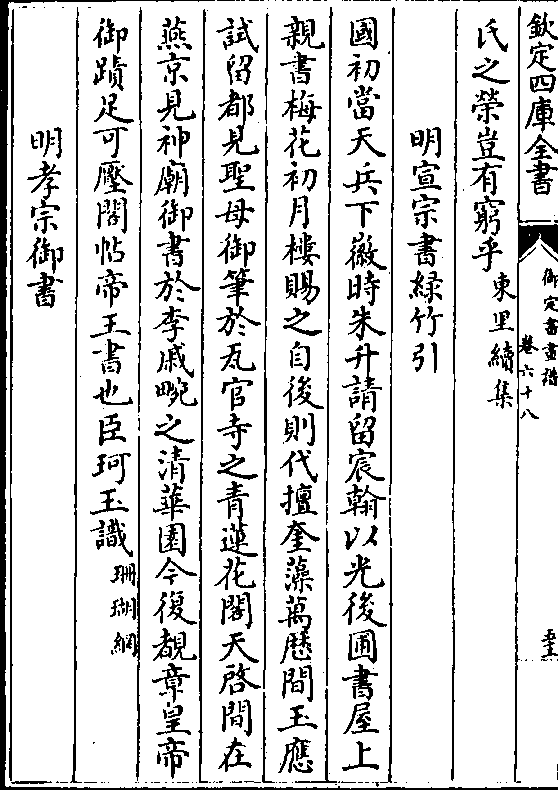 欽定四庫全書
御定書畫譜
卷六十八
氏之榮豈有窮乎東里續集
明宣宗書緑竹引
國初當天兵下徽時朱升請留宸翰以光後圃書屋上
親書梅花初月樓賜之自後則代擅奎藻萬歴間玉應
試留都見聖母御筆於瓦官寺之青蓮花閣天啓間在
燕京見神廟御書於李戚畹之清華園今復覩章皇帝
御蹟足可壓閣帖帝王書也臣珂玉識珊瑚網
明孝宗御書